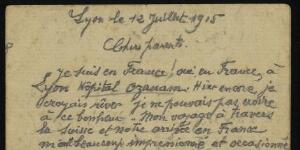 Lyon le 12 Juillet 1915
Chers parents.
Je suis en France! oui en France, à
Lyon Hôpital Ozanam. Hier encore je
croyais rêver je ne pouvais pas croire
à ce bonheur. Mon voyage à travers
la Suisse et notre arrivée en France
m'ont beaucoup impressionné et occasionné